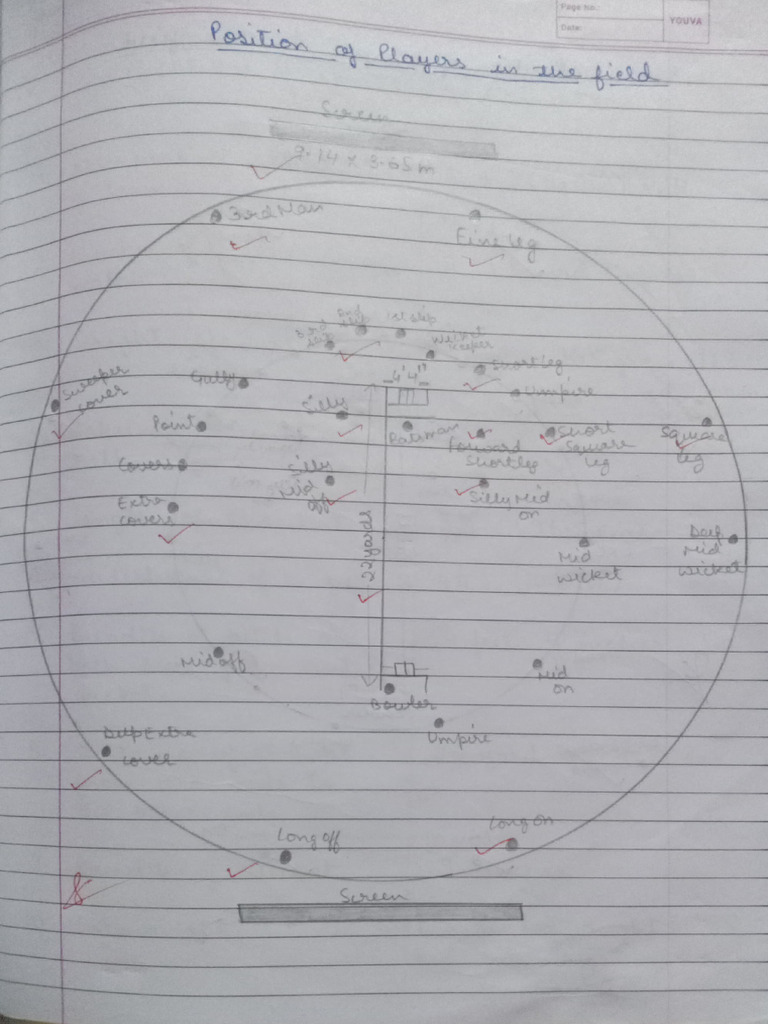 Page No.:
Date:
YOUVA
Position of Players in the field
Screen
9.14 x 3.65 m
3rd Man
Fine leg
2nd slip
1st slip
3rd slip
Wicket keeper
Short leg
4'4"
Umpire
Sweeper
cover
Gully
Silly
Point
Batsman
Forward
Short leg
Short
Square
leg
Square
leg
Covers
Silly
Mid
off
Silly Mid
on
Extra
covers
22 yards
Mid
wicket
Deep
Mid
wicket
Mid off
Mid
on
Bowler
Umpire
Deep Extra
cover
Long off
Long on
Screen